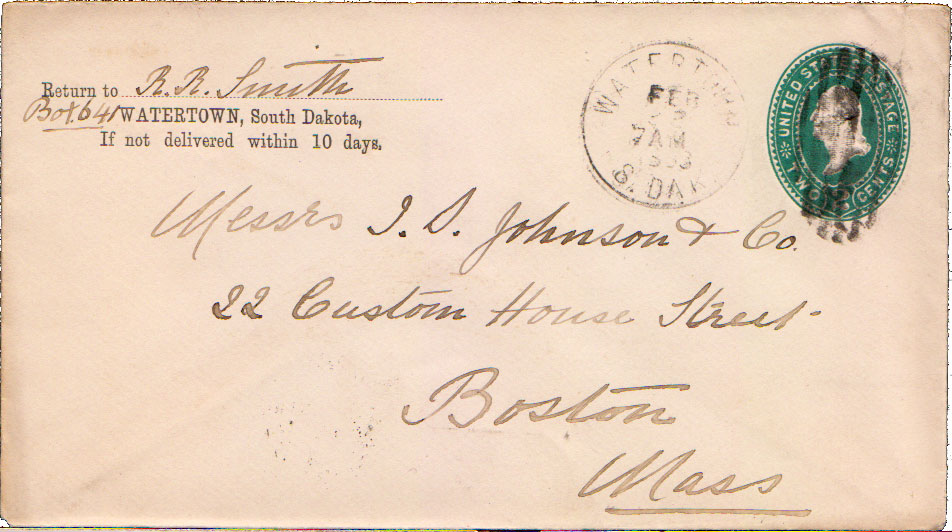 Return to R. R. Smith
Box 641 WATERTOWN, South Dakota,
If not delivered within 10 days.
WATERTOWN
FEB
7 AM
S. DAK.
UNITED STATES POSTAGE
TWO CENTS
Messrs I. S. Johnson & Co.
22 Custom House Street
Boston
Mass